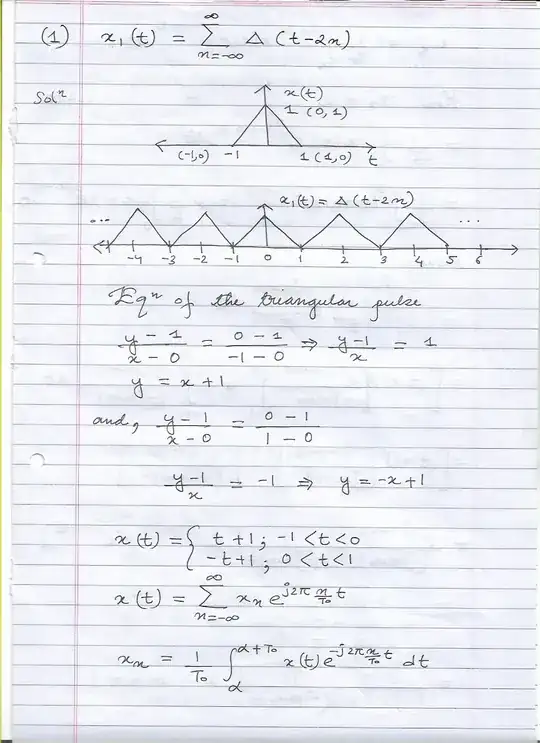 (1) x₁(t) = ∑_{n=-∞}^{∞} Δ (t-2n)
Solⁿ
x(t)
1 (0,1)
(-1,0) -1 1 (1,0) t
x₁(t) = Δ(t-2n)
... ...
-4 -3 -2 -1 0 1 2 3 4 5 6
Eqⁿ of the triangular pulse
(y-1)/(x-0) = (0-1)/(-1-0) ⇒ (y-1)/x = 1
y = x+1
and, (y-1)/(x-0) = (0-1)/(1-0)
(y-1)/x = -1 ⇒ y = -x+1
x(t) = { t+1 ; -1<t<0
-t+1 ; 0<t<1
x(t) = ∑_{n=-∞}^{∞} xₙ e^{j2π (n/T₀) t}
xₙ = 1/T₀ ∫_{α}^{α+T₀} x(t) e^{-j2π (n/T₀) t} dt